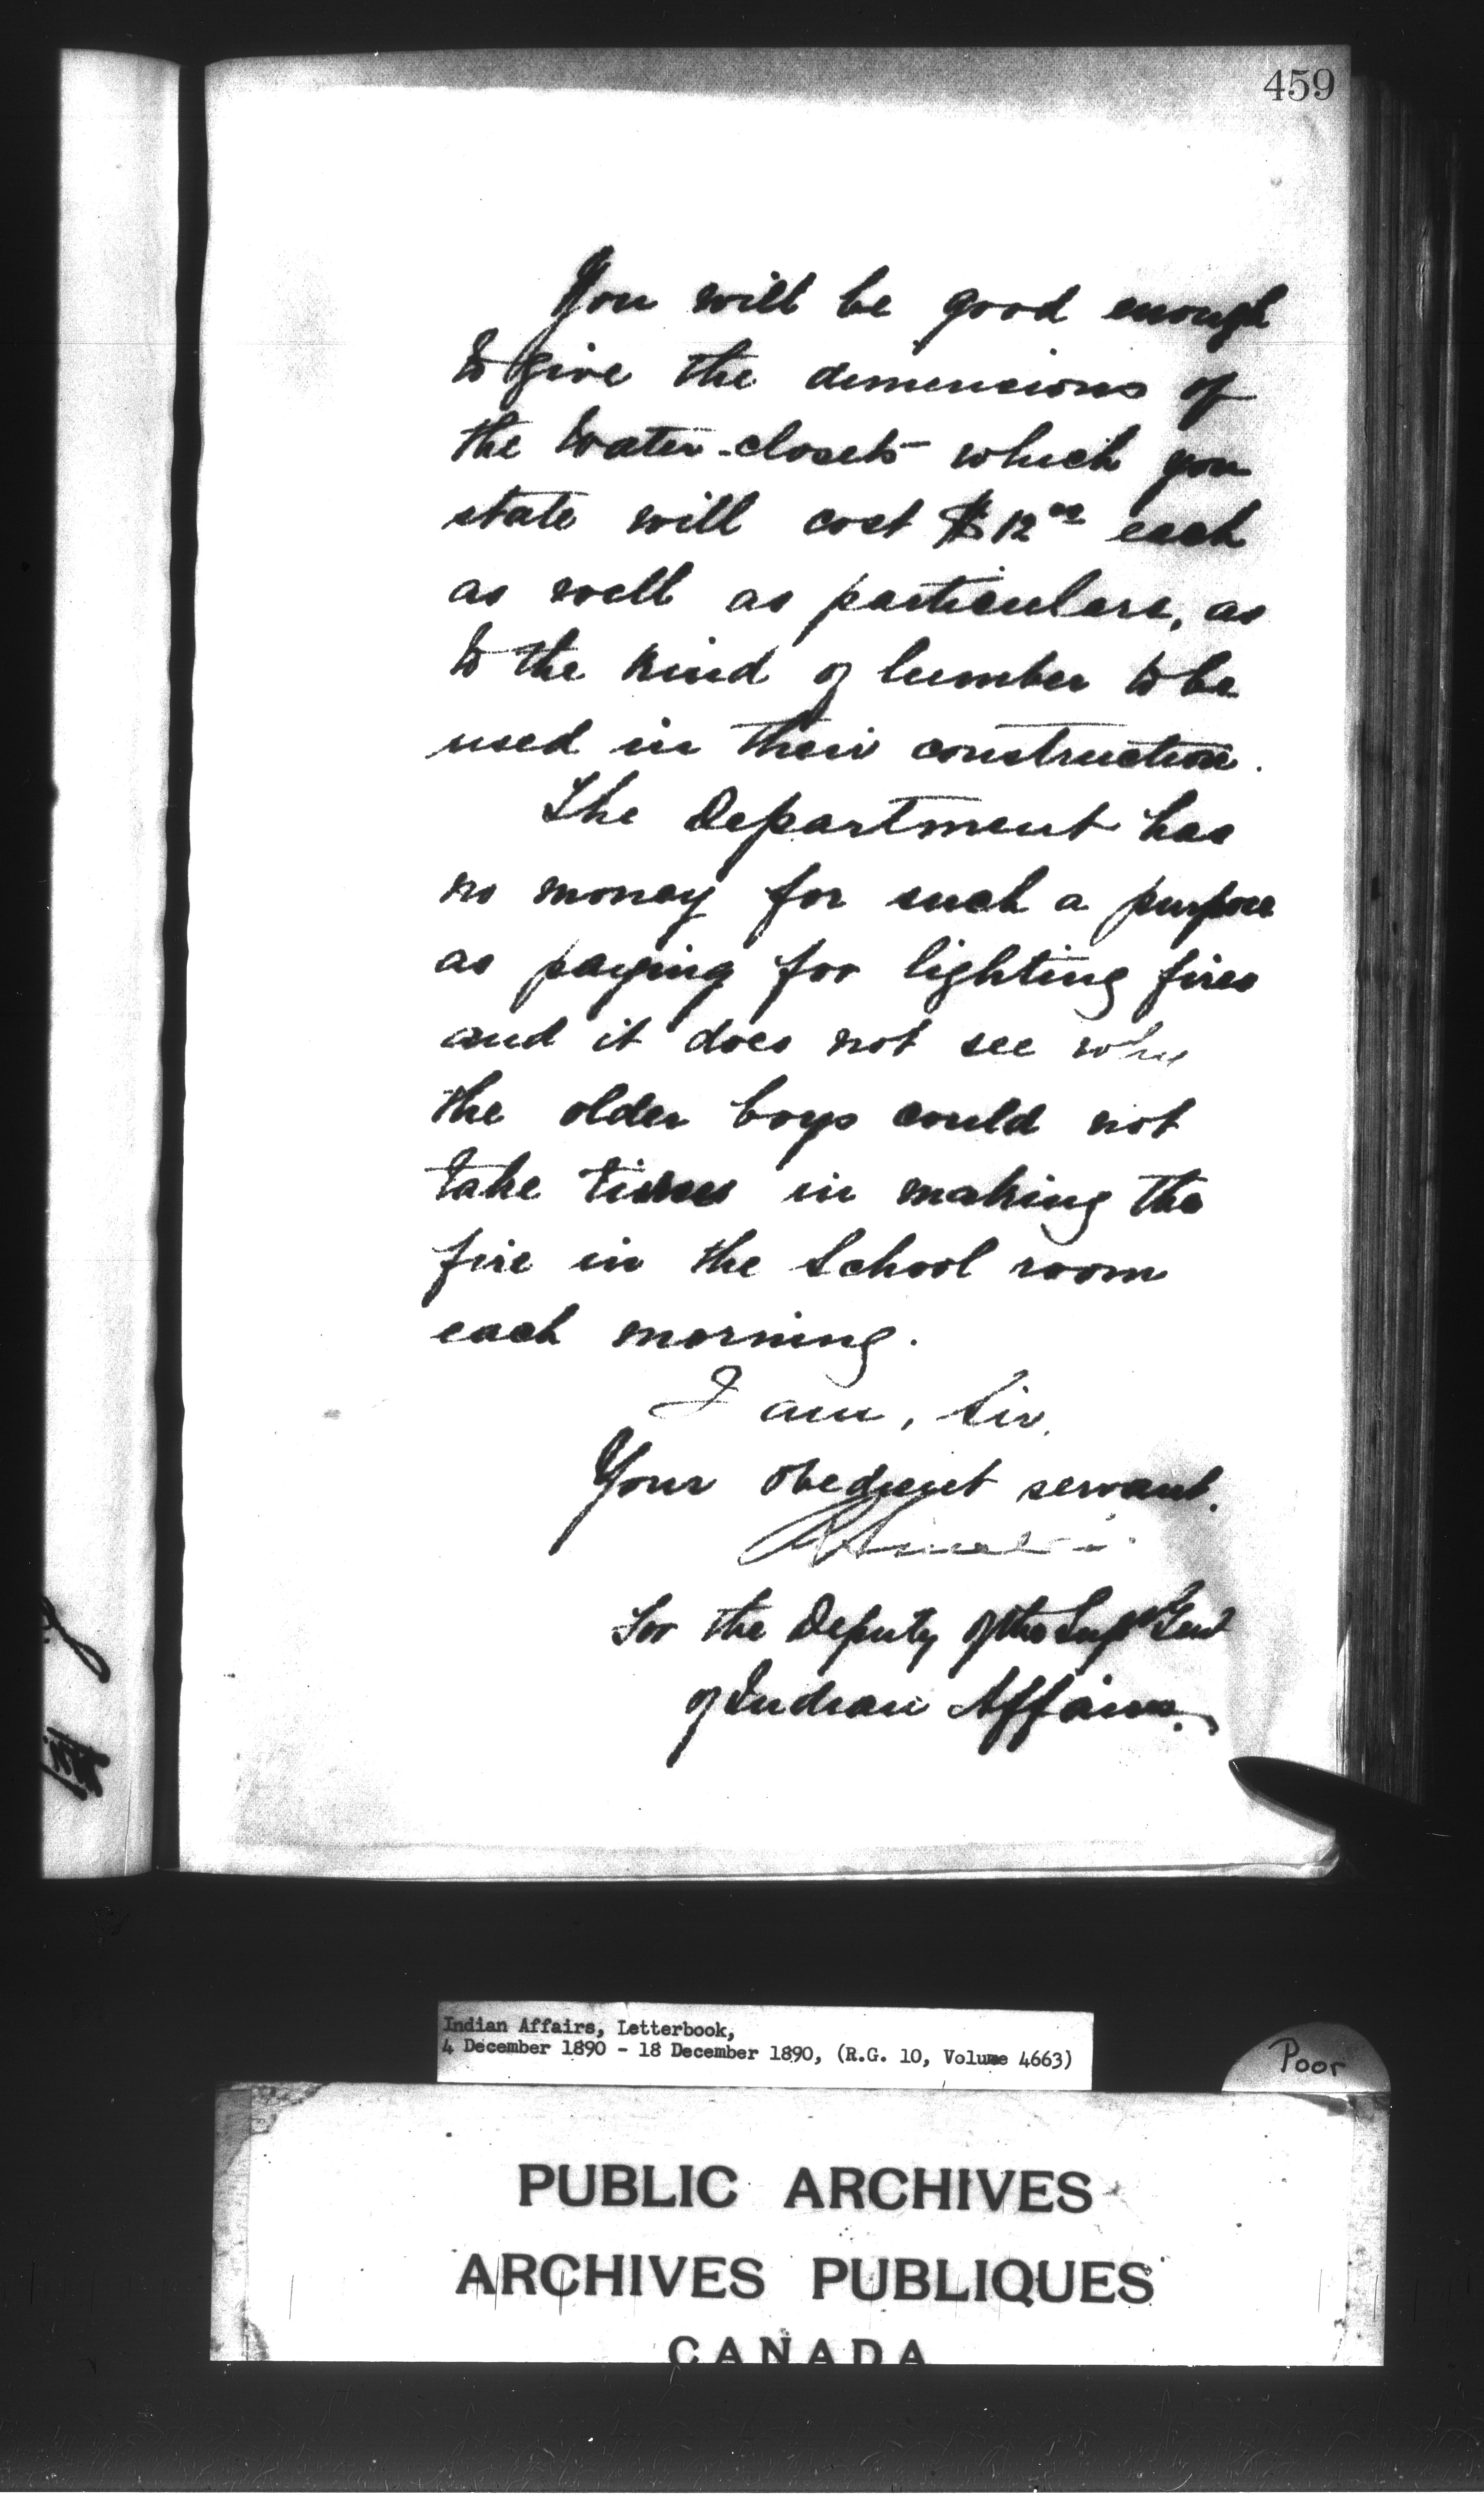 459
You will be good enough
to give the dimensions of
the water-closets which you
state will cost $12.00 each
as well as particulars, as
to the kind of lumber to be
used in their construction.
The Department has
no money for such a purpose
as paying for lighting fires
and it does not see why
the older boys could not
take turns in making the
fire in the School room
each morning.
I am, Sir,
Your obedient servant.
for the Deputy of the Supt Genl
of Indian Affairs.
Indian Affairs, Letterbook,
4 December 1890 - 18 December 1890, (R.G. 10, Volume 4663)
Poor
PUBLIC ARCHIVES
ARCHIVES PUBLIQUES
CANADA